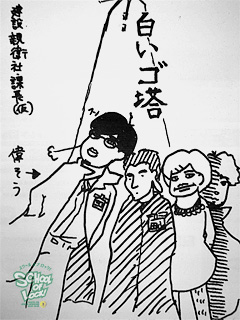 白いゴ塔
建設 衛社課長(仮)
偉そう
SCHOOL
OF
LOCK!